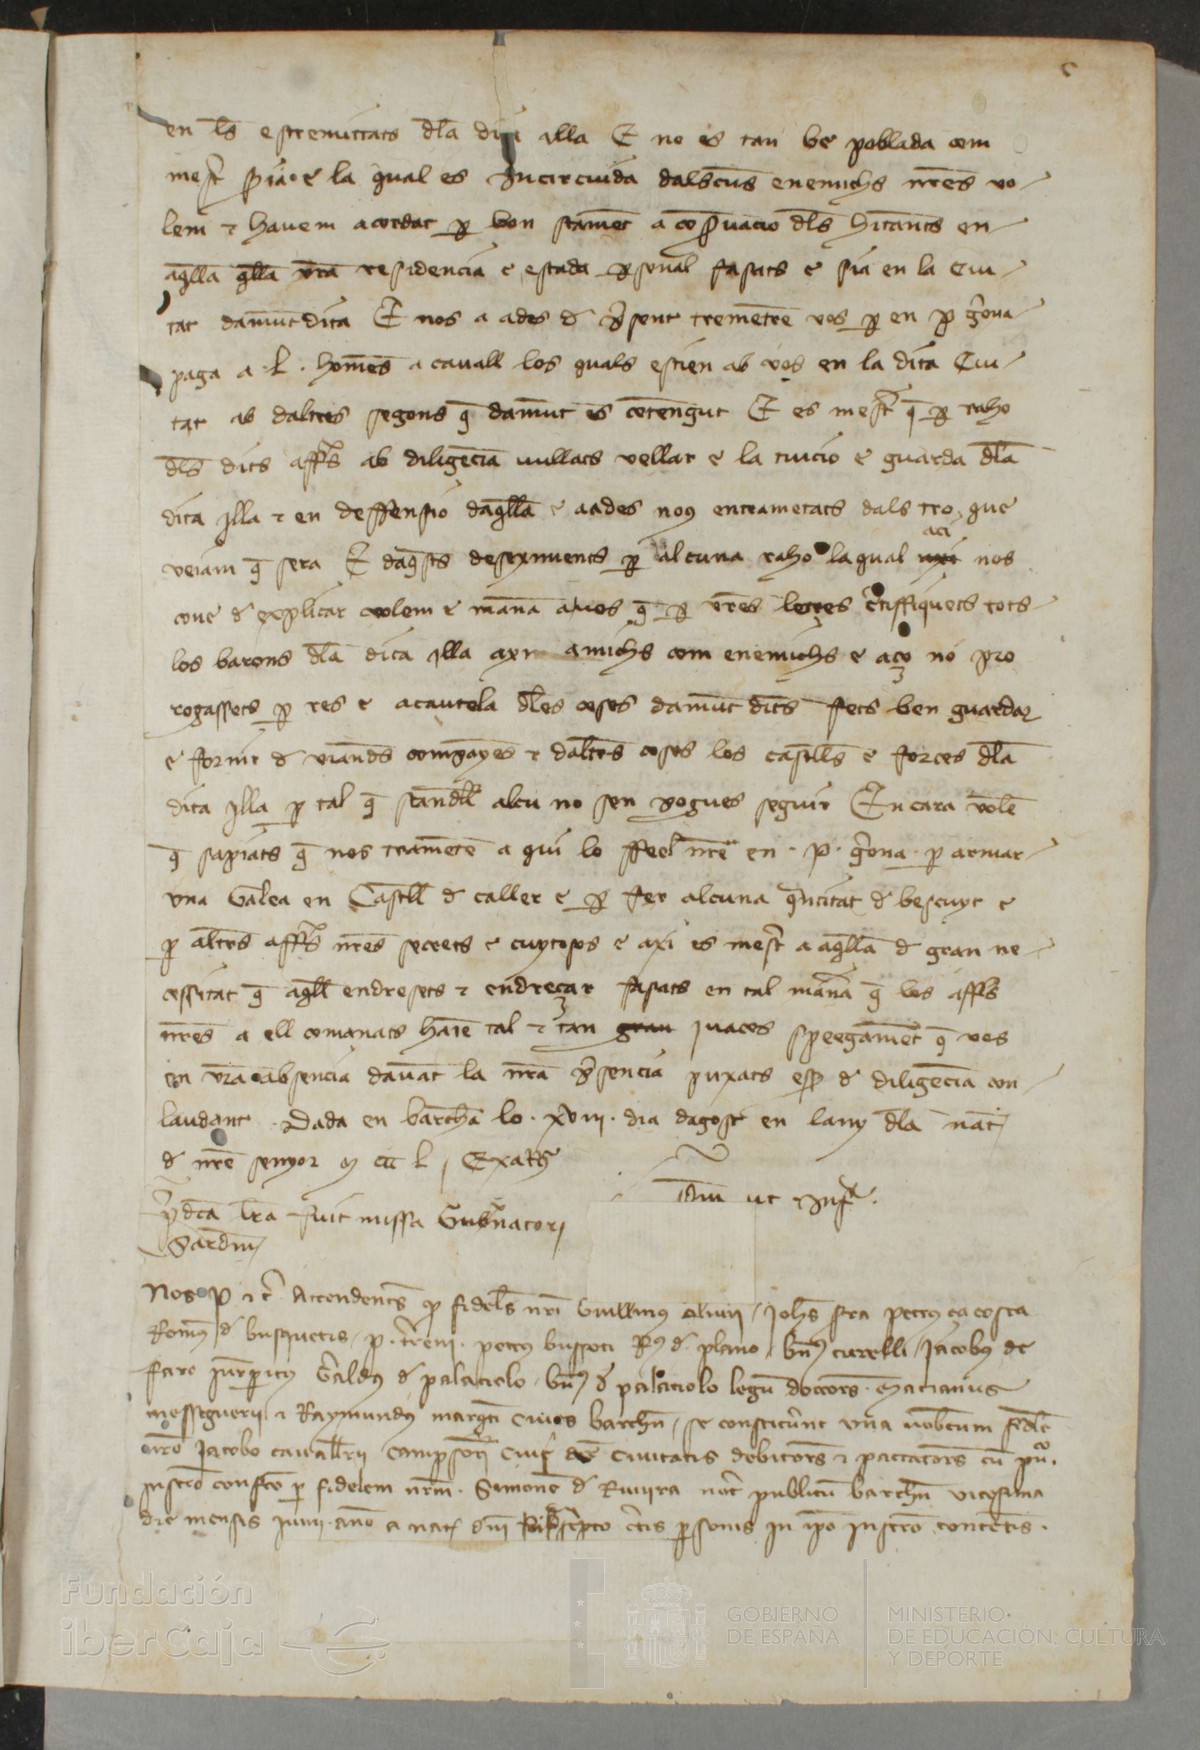 c
en ls estremitats dla dita illa E no es tan be poblada com
mest sia e la qual es Incircuida dalscus enemichs nres vo-
lem e havem acordat p bon stament a conservacio dls hitants en
aqlla qlla vra residencia e estada psonal fasats e sia en la Ciu-
tat damut dita E nos a ades d psent trematre vos p en p gerona
paga a .L. homes a cavall los quals estien ab vos en la dita Ciu-
tat ab daltres segons q damut es cotengut E es mest q p raho
dls dits affs ab diligecia vullats vellar e la tuicio e guarda dla
dita Illa e en deffensio daqlla e aades nous entrametats dals tro que
veiam q sera E daqsts deseximents p alcuna raho la qual aci nos
cove d explicar volem e mana a vos q p vres letres ctiffiquets tots
los barons dla dita Illa axi amichs com enemichs e aço no pro
rogassets p res e a cautela dles coses damut dites fets ben guardar
e fornir d viandes compayes e daltres coses los castells e forces dla
dita Illa p tal q standell alcu no sen pogues seguir Encara vole
q sapiats q nos tramete a qui lo ffeel nre en .p. gerona p armar
una Galea en Castell d caller e p fer alcuna qntitat d bescuyt e
p altres affs nres secrets e cuytosos e axi es mest a aqlla d gran ne-
cessitat q aqll endresets e endreçar fasats en tal mana q los affs
nres a ell comanats haie tal e tan ivaços speegament q vos
en vra absencia davat la nra psencia puxats esser d diligecia con-
laudant . Dada en barchna lo .xviii. dia dagost en lany dla nat
d nre senyor M CCC L . Exatus
Idm ut Infr.
pdca lra fuit missa Gubnatori
Sardin
Nos p etc Attendentes q fideles nri Guillmus oliverii, Johes serra petrus ça costa
Romeus d busquetis, p. treni. petrus bussoti Rus d plano, bnus turelli, Jacobus de
faro Jurisperitus Geraldus d palaciolo bnus d palaciolo legum doctores. Matianus
messeguerii e Raymundus marqti cives barchn, se constituerunt una vobcum fideli
nro Jacobo cavallerii campsori Civi dce Civitatis debitores e paccatores cum pu.
instro confecto p fidelem nrm. Simone d Ruvira not publicu barchn vicesima
die mensis Junii anno a nat dni subscripto certis personis in ipo Instro contentis.
Fundación
iberCaja
GOBIERNO
DE ESPAÑA
MINISTERIO
DE EDUCACIÓN, CULTURA
Y DEPORTE